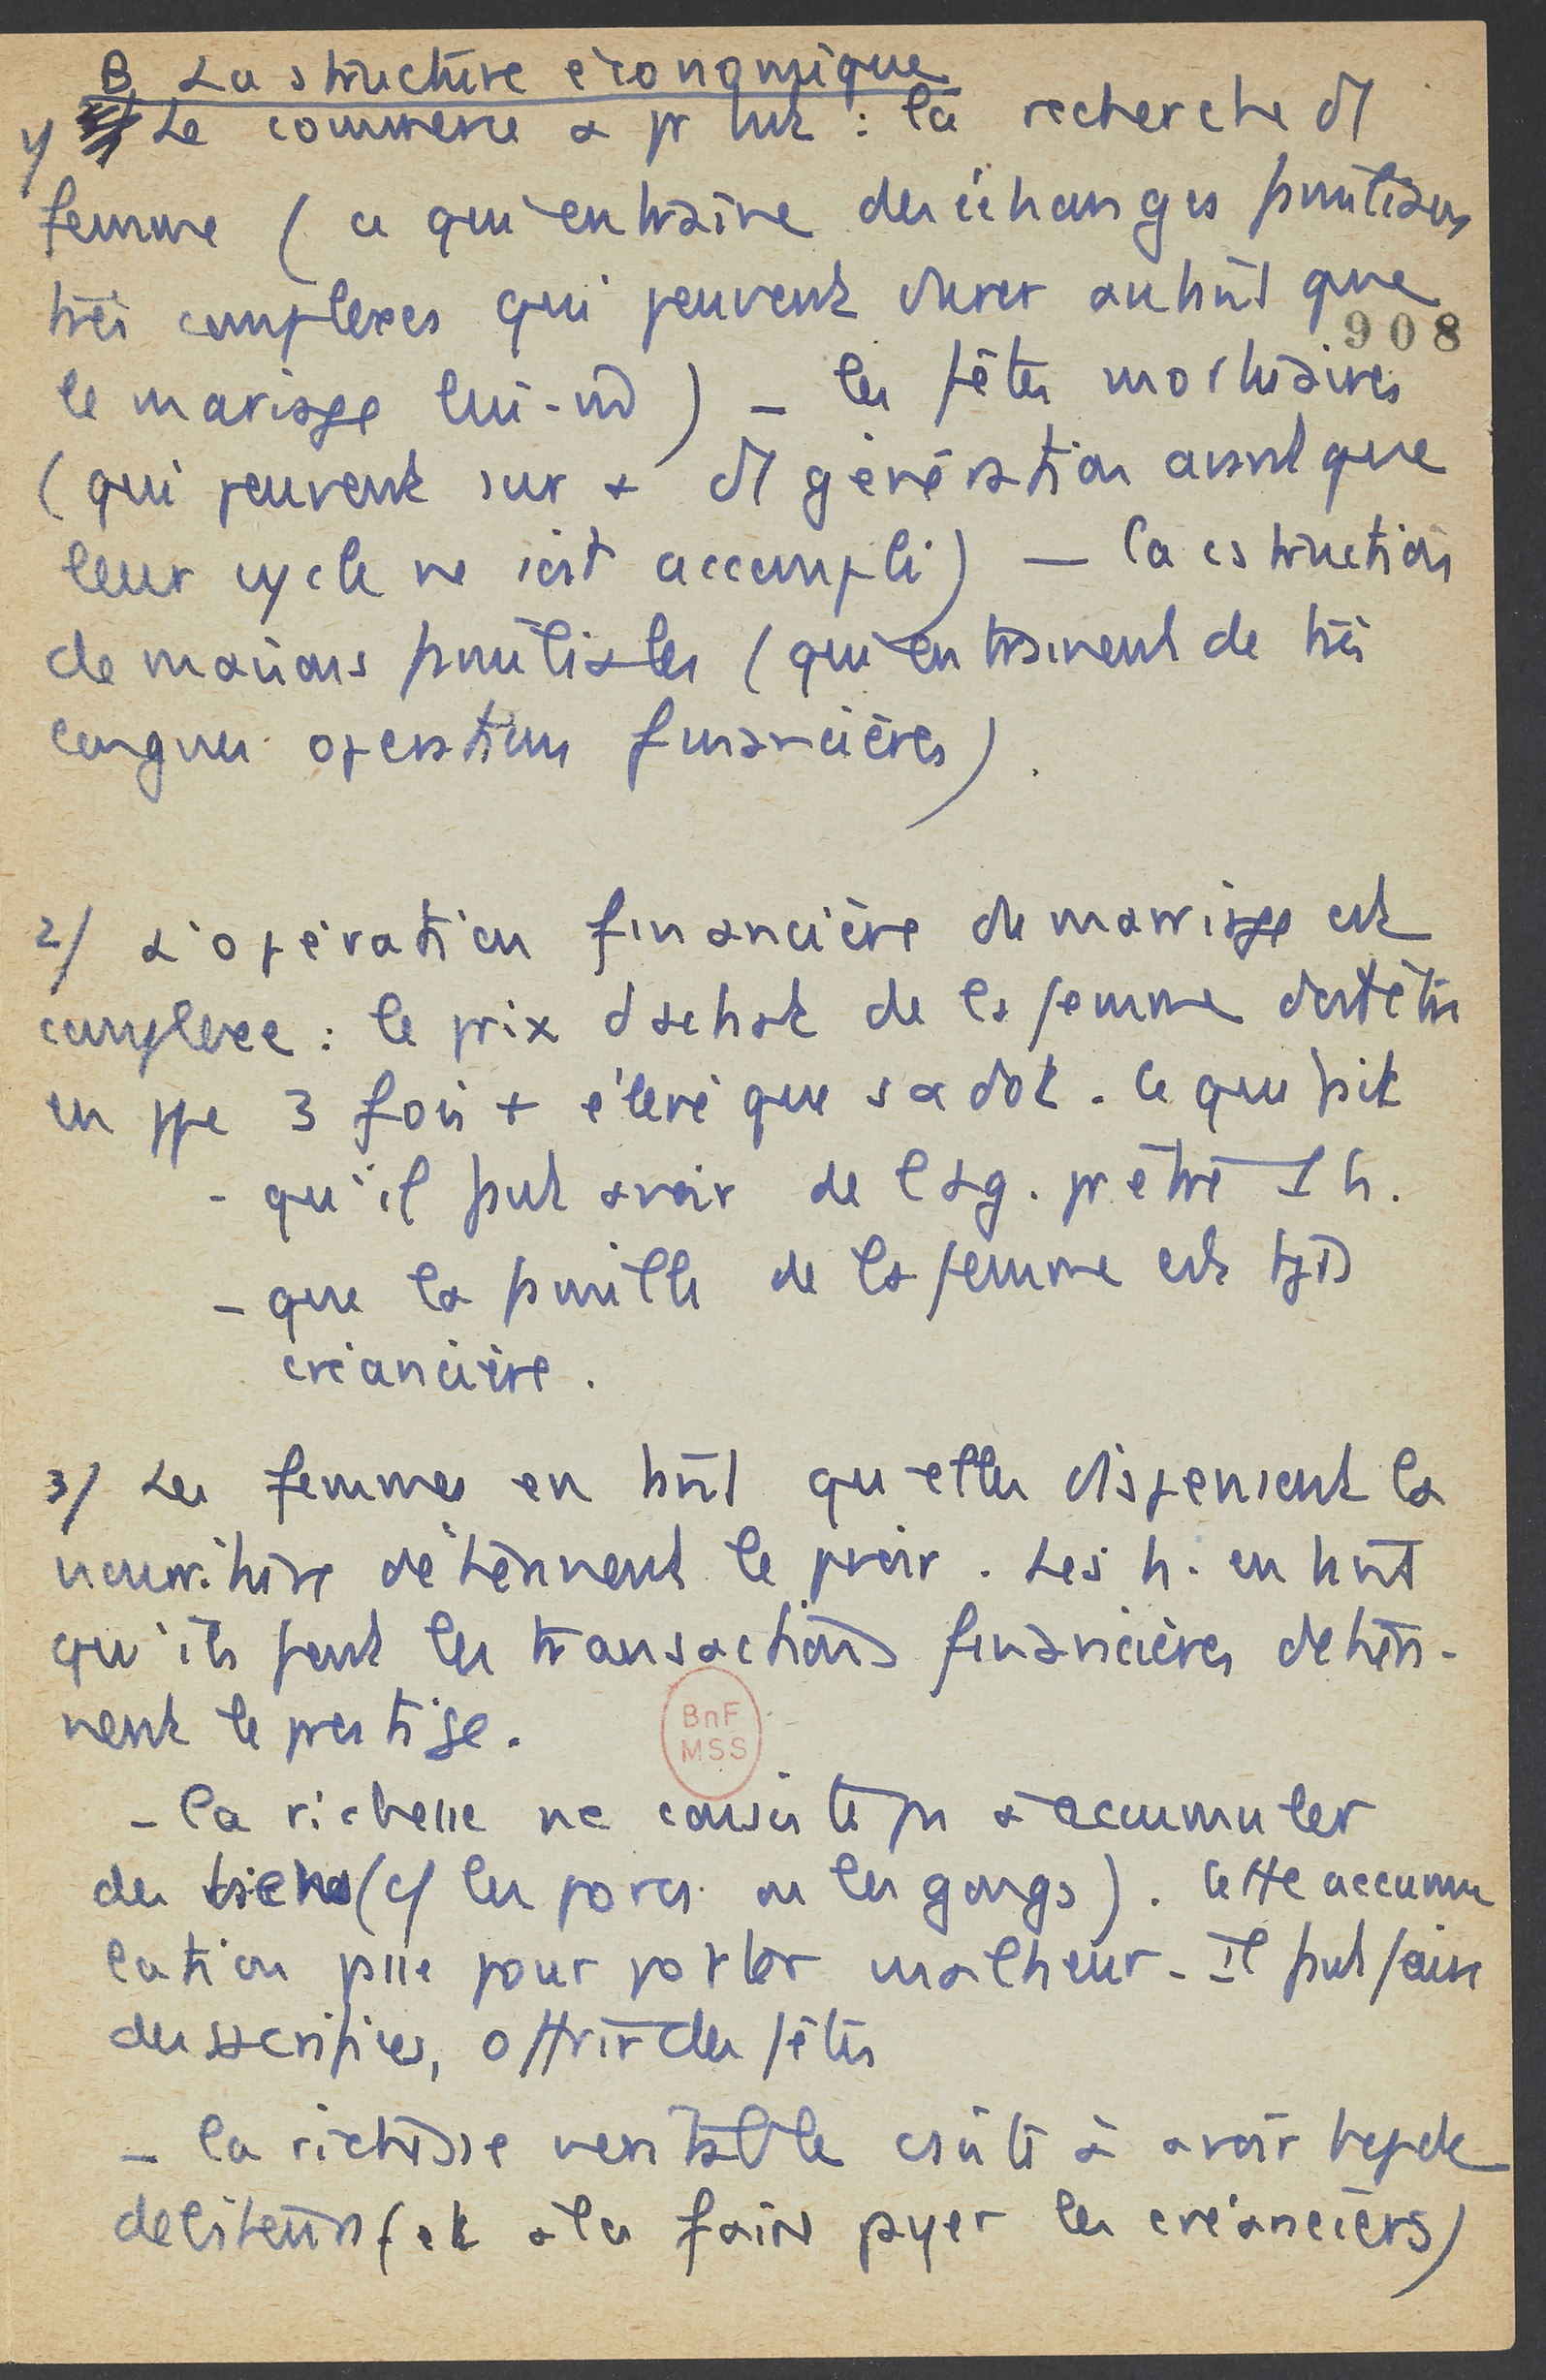 B La structure économique
1/ Le commerce a pr but : la recherche d'1
femme (ce qui entraîne des échanges familiaux
très complexes qui peuvent durer autant que
908
le mariage lui-m̂) – les fêtes mortuaires
(qui peuvent sur + d'1 génération avant que
leur cycle ne soit accompli) — la cstruction
de maisons familiales (qui entrainent de très
longues operations financières).
2/ L'opération financière du marriage est
complexe : le prix d'achat de la femme doit être
en ppe 3 fois + élevé que sa dot. Ce qui fait
- qu'il faut avoir de l'arg. pr être 1 h.
- que la famille de la femme est tjs
créancière.
3/ Les femmes en tant qu'elles dispensent la
nourriture détiennent le pvoir. Les h. en tant
qu'ils font les transactions financières détien-
nent le prestige.
BnF
MSS
- la richesse ne consiste pas à accumuler
des biens (cf les porcs ou les gongs). Cette accumu
lation passe pour porter malheur. Il faut faire
des sacrifices, offrir des fêtes
- la richesse veritable csiste à avoir bcp de
debiteurs (et à les faire payer les créanciers)